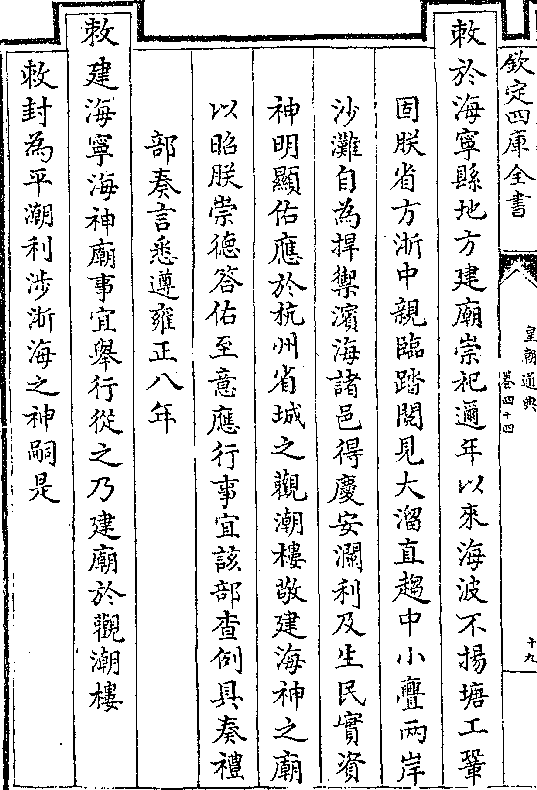 欽定四庫全書
皇朝通典
卷四十四
十九
敕於海寧縣地方建廟崇祀邇年以來海波不揚塘工鞏
固朕省方浙中親臨踏閱見大溜直趨中小亹兩岸
沙灘自為捍禦濱海諸邑得慶安瀾利及生民實資
神明顯佑應於杭州省城之觀潮樓敬建海神之廟
以昭朕崇德答佑至意應行事宜該部查例具奏禮
部奏言悉遵雍正八年
敕建海寧海神廟事宜舉行從之乃建廟於觀潮樓
敕封為平潮利涉浙海之神嗣是